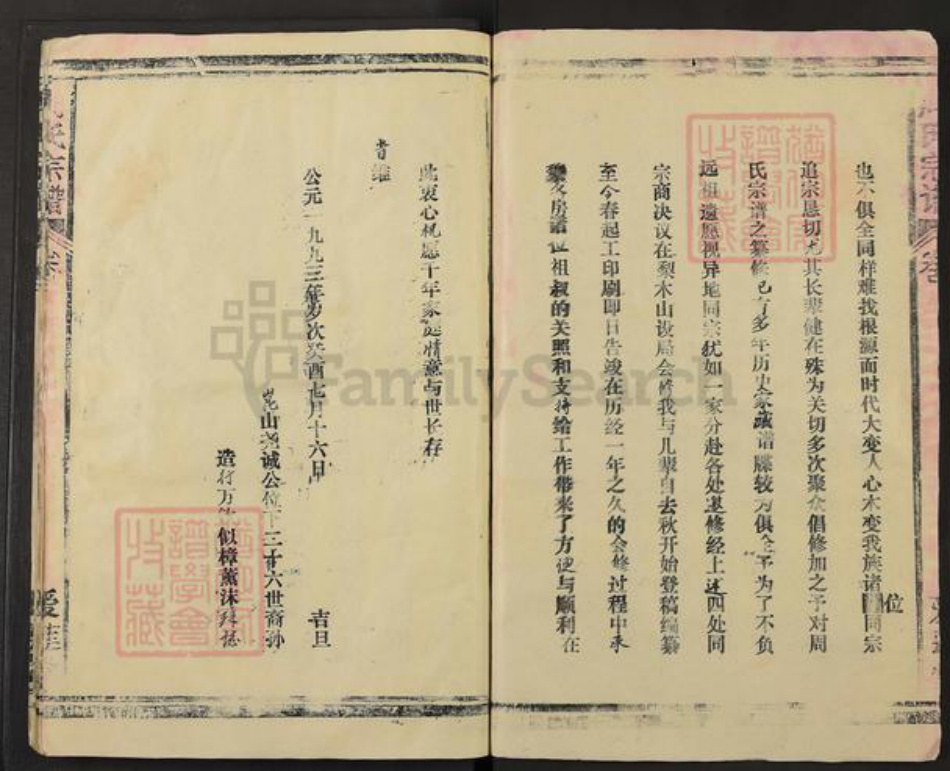 也不俱全同样难找根源面时代大变人心木变我族诸位同宗
追宗恳切尤其长辈健在殊为关切多次聚众倡修加之予对周
氏宗谱之纂修已有多年历史家藏谱牒较为俱全予为了不负
远祖遗愿视异地同宗犹如一家分赴各处逑修经上述四处同
宗商决议在梨木山设局会修我与儿辈自去秋开始登稿编纂
至今春起工印刷即日告竣在历经一年之久的会修过程中承
蒙各房诸位祖叔的关照和支持给工作带来了方便与顺利在
此衷心祝愿千年家庭情意与世长存
公元一九九三年岁次癸酉七月十六日
吉旦
山尧诚公位下三十六世裔孙
似樟薰沐拜
氏宗谱
FamilySearch
譜學會
收藏